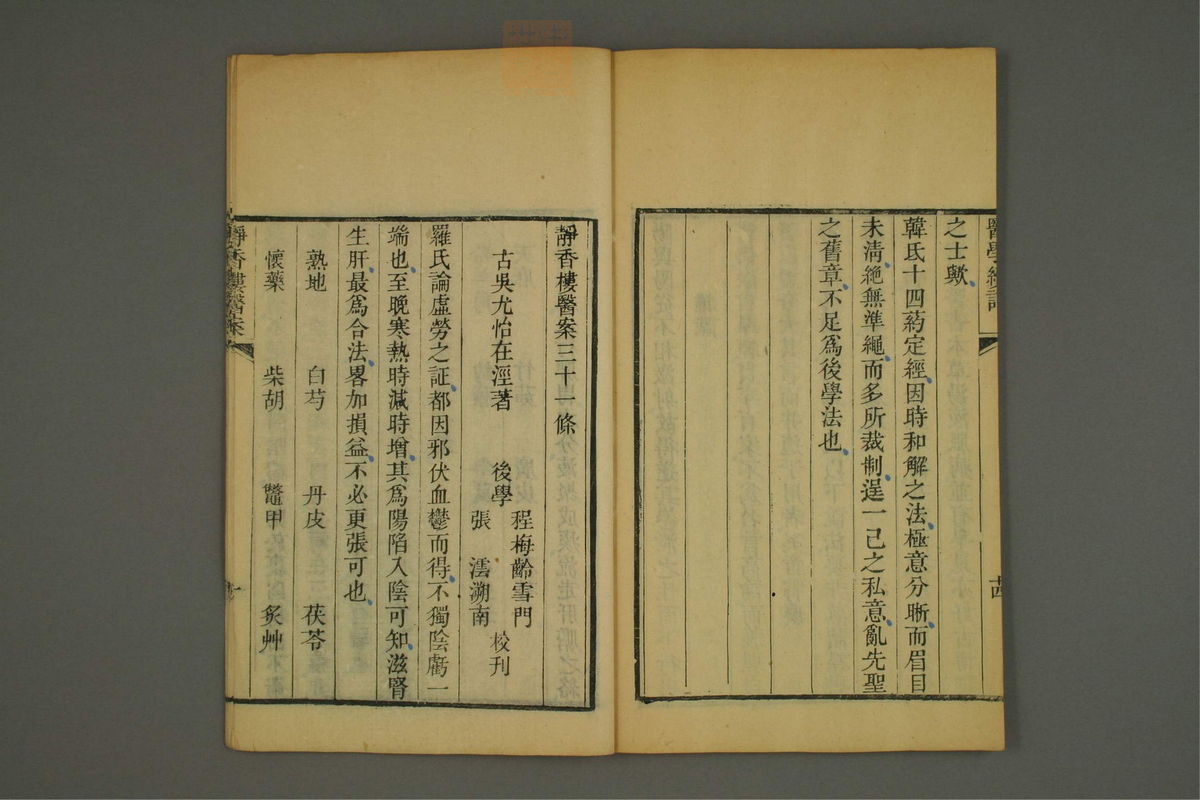 之士歟
韓氏十四葯定經因時和解之法極意分晰而眉目
未淸絶無準繩而多所裁制逞一己之私意亂先聖
之舊章不足爲後學法也
靜香樓醫案三十一條
古吳尤怡在涇著
後學
程梅齡雪門
張 澐溯南
校刊
羅氏論虛勞之証都因邪伏血鬱而得不獨陰虧一
端也至晚寒熱時減時增其爲陽陷入陰可知滋腎
生肝最爲合法畧加損益不必更張可也
熟地 白芍 丹皮 茯苓
懷藥 柴胡 鱉甲 炙艸
靜香樓醫案
一